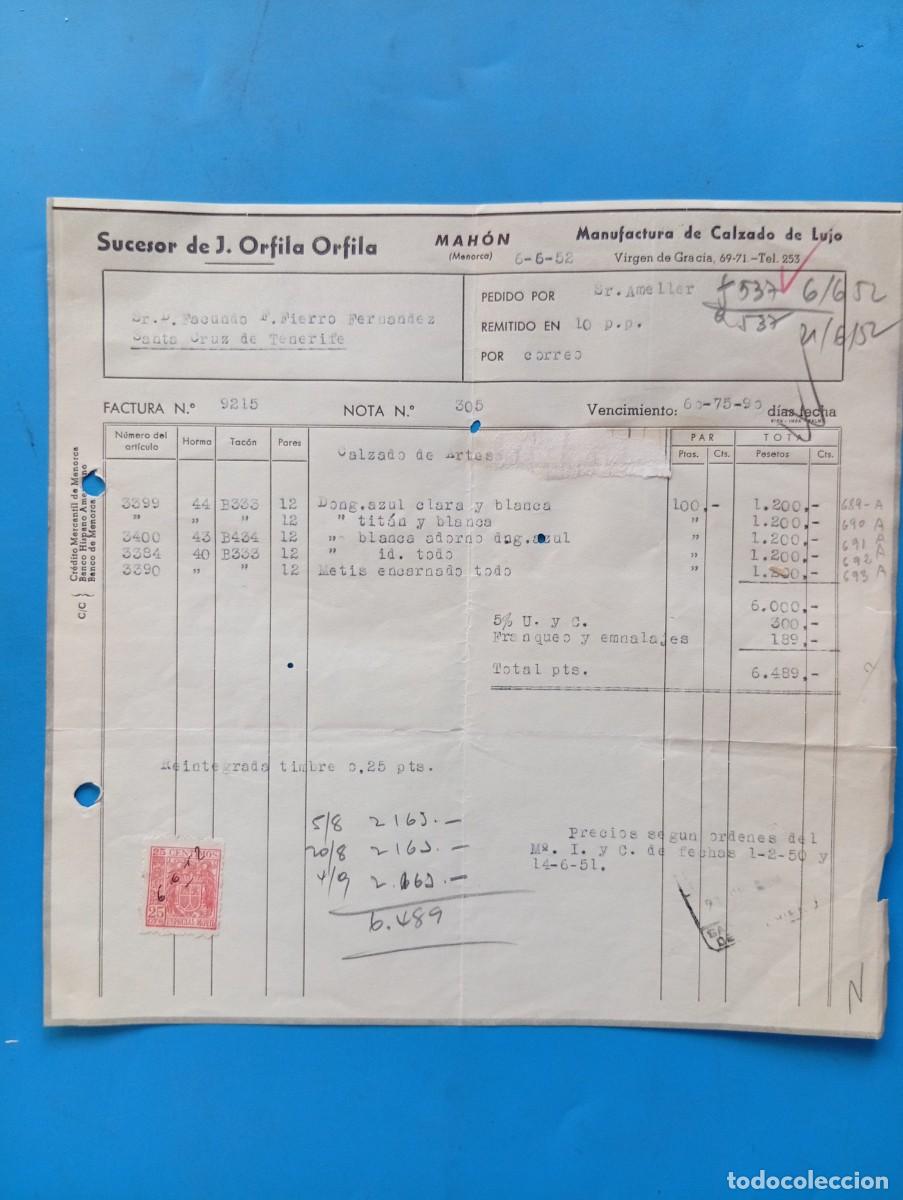 Sucesor de J. Orfila Orfila
MAHÓN
(Menorca)
6-6-52
Manufactura de Calzado de Lujo
Virgen de Gracia, 69-71.-Tel. 253
Sr.D. Facundo F. Fierro Fernandez
Santa Cruz de Tenerife
PEDIDO POR Sr. Ameller
REMITIDO EN 10 p.p.
POR correo
537 6/6/52
537 21/6/52
FACTURA N.º 9215
NOTA N.º 305
Vencimiento: 60-75-90 días fecha
Número del artículo Horma Tacón Pares PAR TOTAL
Ptas. Cts. Pesetas Cts.
Calzado de Artes
3399 44 B333 12 Dong.azul clara y blanca 100,- 1.200,- 689-A
" " " 12 " titán y blanca " 1.200,- 690 A
3400 43 B434 12 " blanca adorno dng.azul " 1.200,- 691 A
3384 40 B333 12 " id. todo " 1.200,- 692 A
3390 " " 12 Metis encarnado todo " 1.200,- 693 A
6.000,-
5% U. y C. 300,-
Franqueo y emnalajes 189,-
Total pts. 6.489,-
C/C
Crédito Mercantil de Menorca
Banco Hispano Americano
Banco de Menorca
Reintegrada timbre 0,25 pts.
5/8 2163.—
20/8 2.163.—
4/9 2.163.—
6.489
Precios segun ordenes del
Mº. I. y C. de fechas 1-2-50 y
14-6-51.
25 CENTIMOS
6 6 52
25
ESPECIAL MOVIL
N
todocoleccion